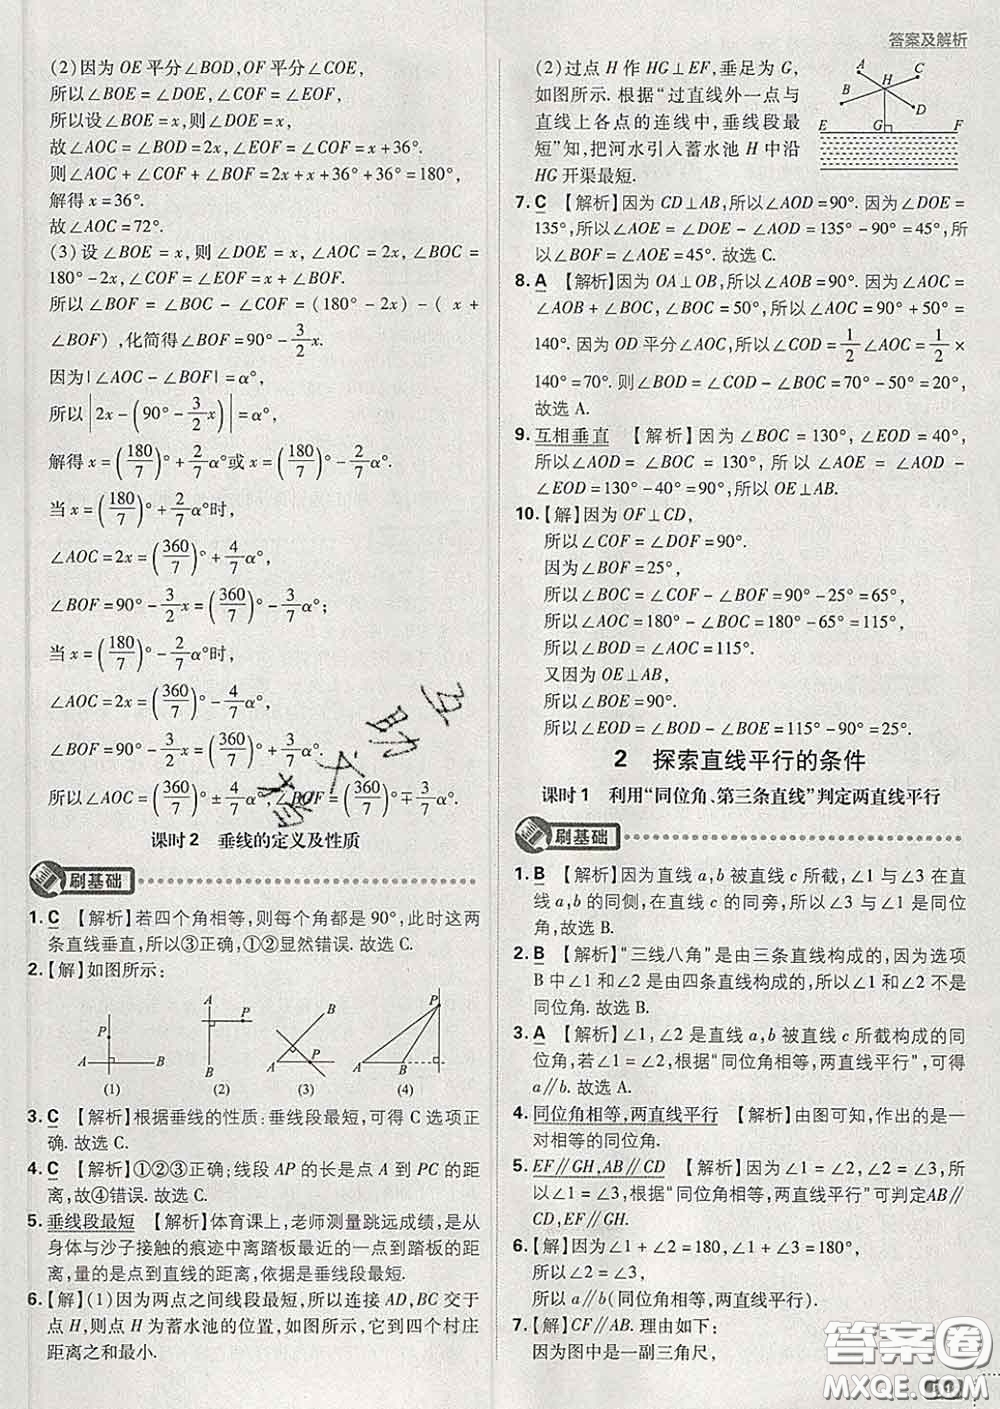 答案及解析
(2)因为 OE 平分∠BOD,OF 平分∠COE,
所以∠BOE=∠DOE,∠COF=∠EOF,
所以设∠BOE=x,则∠DOE=x,
故∠AOC=∠BOD=2x,∠EOF=∠COF=x+36°.
则∠AOC+∠COF+∠BOF=2x+x+36°+36°=180°,
解得 x=36°.
故∠AOC=72°.
(3)设∠BOE=x,则∠DOE=x,∠AOC=2x,∠BOC=
180°-2x,∠COF=∠EOF=x+∠BOF.
所以∠BOF=∠BOC-∠COF=(180°-2x)-(x+
∠BOF),化简得∠BOF=90°-3/2 x.
因为|∠AOC-∠BOF|=α°,
所以|2x-(90°-3/2 x)|=α°,
解得 x=(180/7)°+2/7 α°或 x=(180/7)°-2/7 α°.
当 x=(180/7)°+2/7 α°时,
∠AOC=2x=(360/7)°+4/7 α°,
∠BOF=90°-3/2 x=(360/7)°-3/7 α°;
当 x=(180/7)°-2/7 α°时,
∠AOC=2x=(360/7)°-4/7 α°,
∠BOF=90°-3/2 x=(360/7)°+3/7 α°.
所以∠AOC=(360/7)°±4/7 α°,∠BOF=(360/7)°∓3/7 α°.
课时2 垂线的定义及性质
刷基础
1. C 【解析】若四个角相等,则每个角都是 90°,此时这两
条直线垂直,所以③正确,①②显然错误. 故选 C.
2.【解】如图所示:
P A B (1)
A P B (2)
A P B (3)
P A B (4)
3. C 【解析】根据垂线的性质:垂线段最短,可得 C 选项正
确. 故选 C.
4. C 【解析】①②③正确;线段 AP 的长是点 A 到 PC 的距
离,故④错误. 故选 C.
5. 垂线段最短 【解析】体育课上,老师测量跳远成绩,是从
身体与沙子接触的痕迹中离踏板最近的一点到踏板的距
离,量的是点到直线的距离,依据是垂线段最短.
6.【解】(1)因为两点之间线段最短,所以连接 AD,BC 交于
点 H,则点 H 为蓄水池的位置,如图所示,它到四个村庄
距离之和最小.
(2)过点 H 作 HG⊥EF,垂足为 G,
如图所示. 根据“过直线外一点与
直线上各点的连线中,垂线段最
短”知,把河水引入蓄水池 H 中沿
HG 开渠最短.
A C H B D E G F
7. C 【解析】因为 CD⊥AB,所以∠AOD=90°. 因为∠DOE=
135°,所以∠AOE=∠DOE-∠AOD=135°-90°=45°,所
以∠BOF=∠AOE=45°. 故选 C.
8. A 【解析】因为 OA⊥OB,所以∠AOB=90°. 因为∠AOC=
∠AOB+∠BOC,∠BOC=50°,所以∠AOC=90°+50°=
140°. 因为 OD 平分∠AOC,所以∠COD=1/2∠AOC=1/2×
140°=70°. 则∠BOD=∠COD-∠BOC=70°-50°=20°,
故选 A.
9. 互相垂直 【解析】因为∠BOC=130°,∠EOD=40°,
所以∠AOD=∠BOC=130°,所以∠AOE=∠AOD-
∠EOD=130°-40°=90°,所以 OE⊥AB.
10.【解】因为 OF⊥CD,
所以∠COF=∠DOF=90°.
因为∠BOF=25°,
所以∠BOC=∠COF-∠BOF=90°-25°=65°,
所以∠AOC=180°-∠BOC=180°-65°=115°,
所以∠BOD=∠AOC=115°.
又因为 OE⊥AB,
所以∠BOE=90°.
所以∠EOD=∠BOD-∠BOE=115°-90°=25°.
2 探索直线平行的条件
课时1 利用“同位角、第三条直线”判定两直线平行
刷基础
1. B 【解析】因为直线 a,b 被直线 c 所截,∠1 与∠3 在直
线 a,b 的同侧,在直线 c 的同旁,所以∠1 与∠3 是同位
角,故选 B.
2. B 【解析】“三线八角”是由三条直线构成的,因为选项
B 中∠1 和∠2 是由四条直线构成的,所以∠1 和∠2 不是
同位角. 故选 B.
3. A 【解析】∠1,∠2 是直线 a,b 被直线 c 所截构成的同
位角,若∠1=∠2,根据“同位角相等,两直线平行”,可得
a∥b. 故选 A.
4. 同位角相等,两直线平行 【解析】由图可知,作出的是一
对相等的同位角.
5. EF∥GH,AB∥CD 【解析】因为∠1=∠2=∠3,所
以∠1=∠3,根据“同位角相等,两直线平行”可判定AB∥
CD,EF∥GH.
6.【解】因为∠1+∠2=180,∠1+∠=180°,
所以∠2=∠3,
所以 a∥b(同位角相等,两直线平行).
7.【解】CF∥AB. 理由如下:
因为图中是一副三角尺,
互助文
答案圈
MXQE.COM